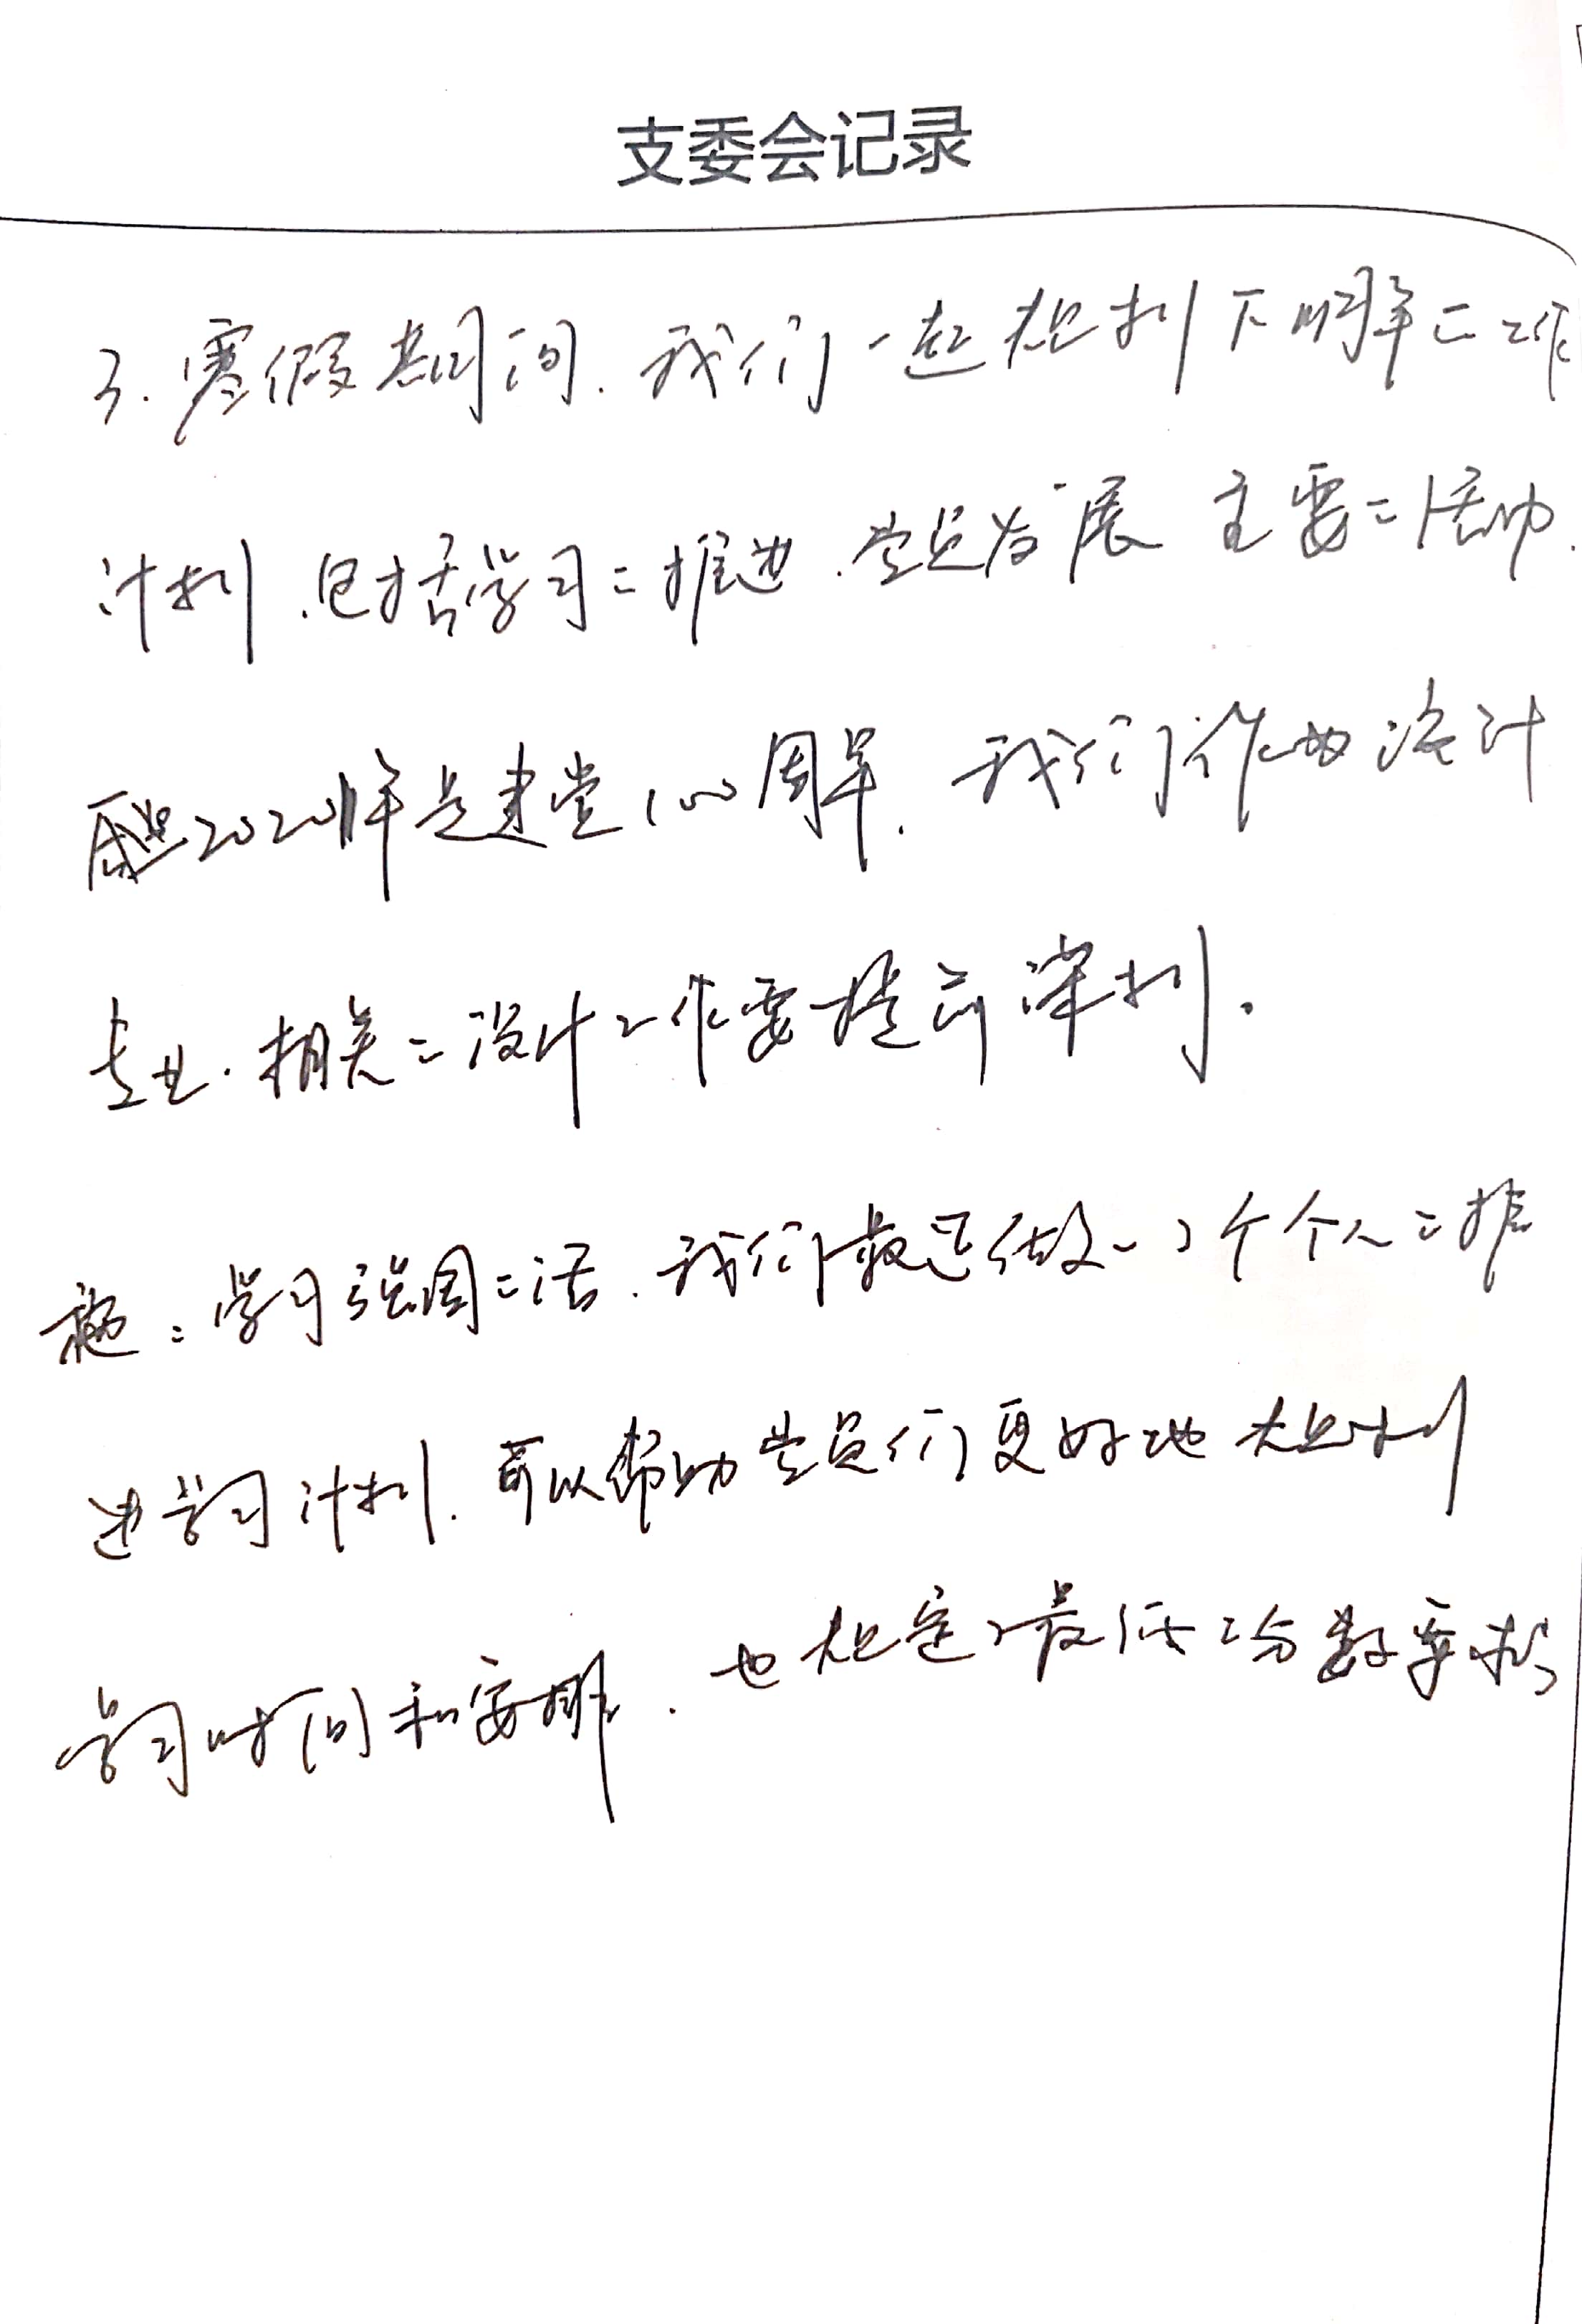 支委会记录
3.寒假期间.我们一起规划下明年的工作
计划.包括学习的推进.党员发展 主要的活动.
2021年是建党100周年.我们作为设计
专业.相关的设计工作要提前谋划.
:学习强国的话.我们最近做了一个个人的推
进学习计划.可以帮助党员们更好地规划
学习时间和安排.也规定了最低的分数要求